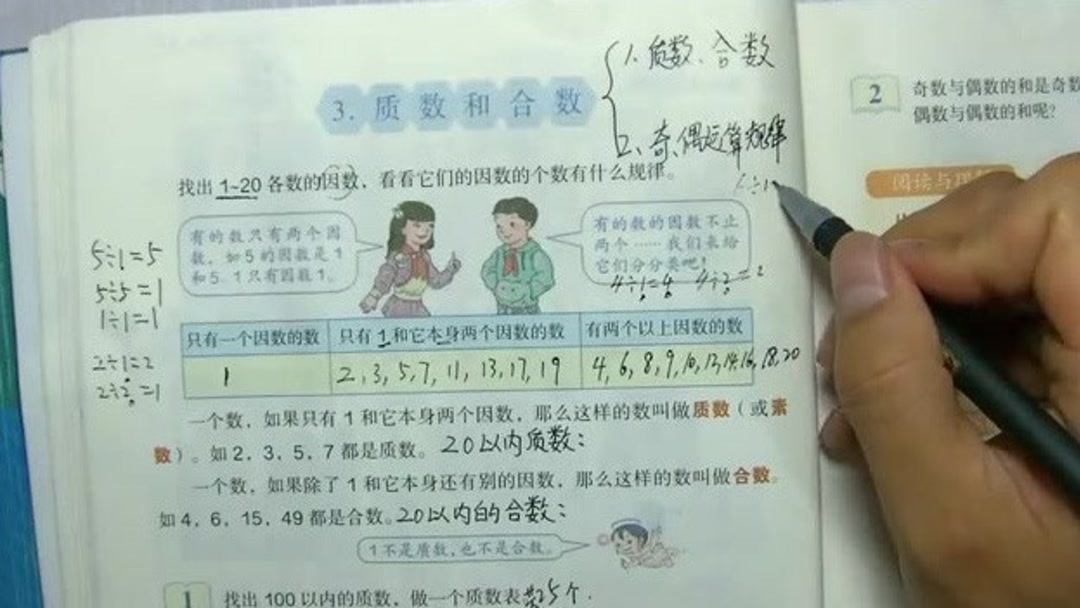 1、质数、合数
3. 质数和合数
2、奇、偶运算规律
找出1~20各数的因数，看看它们的因数的个数有什么规律。
有的数只有两个因
数，如5的因数是1
和5。1只有因数1。
有的数的因数不止
两个……我们来给
它们分分类吧！
4÷1=4 4÷2=2
5÷1=5
5÷5=1
1÷1=1
2÷1=2
2÷2=1
只有一个因数的数 只有1和它本身两个因数的数 有两个以上因数的数
1 2,3,5,7,11,13,17,19 4,6,8,9,10,12,14,16,18,20
一个数，如果只有1和它本身两个因数，那么这样的数叫做质数（或素
数）。如2，3，5，7都是质数。20以内质数：
一个数，如果除了1和它本身还有别的因数，那么这样的数叫做合数。
如4，6，15，49都是合数。20以内的合数：
1不是质数，也不是合数。
1 找出100以内的质数，做一个质数表 共25个.
2 奇数与偶数的和是奇数
偶数与偶数的和呢？
阅读与理